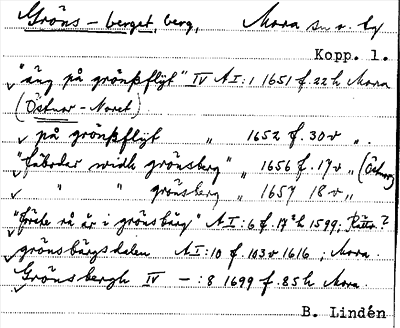 Gröns-berget, berg, Mora sn o. by
Kopp. l.
"äng på grönßflÿt" IV A I:1 1651 f. 22 h Mora
(Östnor-Noret)
på grönßflÿt " 1652 f. 30 v ".
"fäbodar widh grönsberg" " 1656 f. 17 v " (Östnor)
" " grönsberg " 1657 18 v "
"förste rå är i grönsbärg" A I:6 f. 17 h 1599, Rättv?
grönsbärgsdalen A I:10 f. 103 v 1616, Mora.
Grönsbergh IV - :8 1699 f. 85 h Mora.
B. Lindén